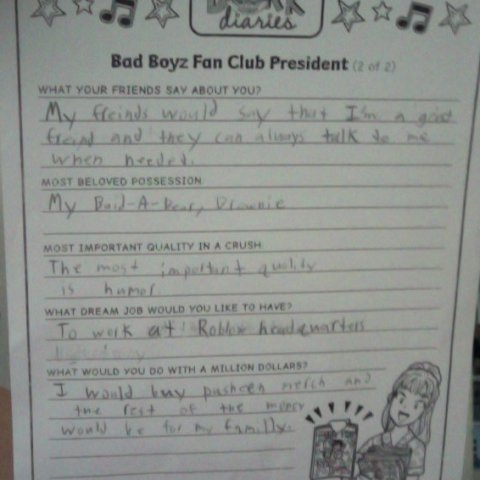 DORK
diaries
Bad Boyz Fan Club President (2 of 2)
WHAT YOUR FRIENDS SAY ABOUT YOU?
My freinds would say that I'm a good
freind and they can always talk to me
when needed.
MOST BELOVED POSSESSION
My Build-A-Bear, Brownie
MOST IMPORTANT QUALITY IN A CRUSH
The most important quality
is humor.
WHAT DREAM JOB WOULD YOU LIKE TO HAVE?
To work at Roblox headquarters
WHAT WOULD YOU DO WITH A MILLION DOLLARS?
I would buy pusheen merch and
the rest of the money
would be for my family.